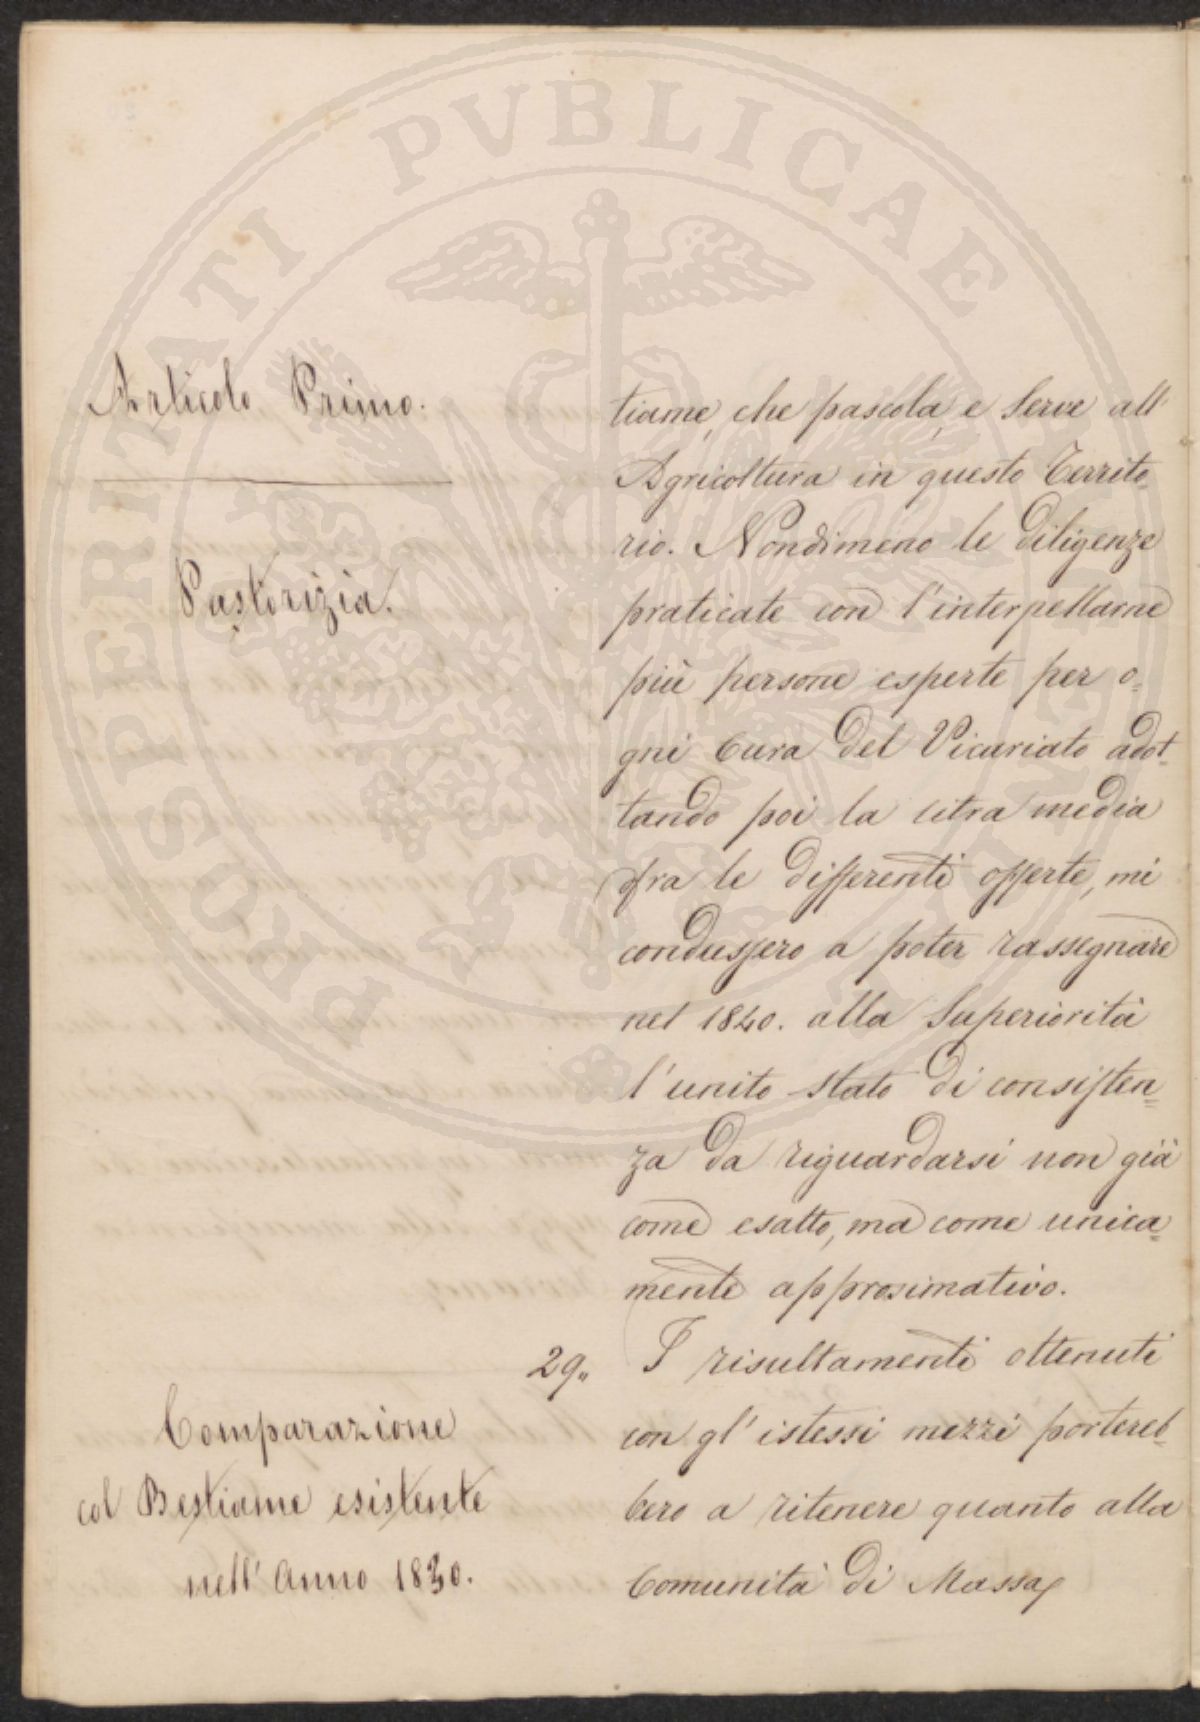 PROSPERITATI PVBLICAE
Articolo Primo.
Pastorizia.
tiame, che pascola, e serve all'
Agricoltura in questo Territo=
rio. Nondimeno le diligenze
praticate con l'interpellarne
più persone esperte per o=
gni Cura del Vicariato adot=
tando poi la citra media
fra le differenti offerte, mi
condussero a poter rassegnare
nel 1840. alla Superiorità
l'unito Stato di consisten=
za da riguardarsi non già
come esatto, ma come unica=
mente approsimativo.
29„ I risultamenti ottenuti
con gl'istessi mezzi portereb=
bero a ritenere quanto alla
Comunità di Massa,
Comparazione
col Bestiame esistente
nell'Anno 1830.